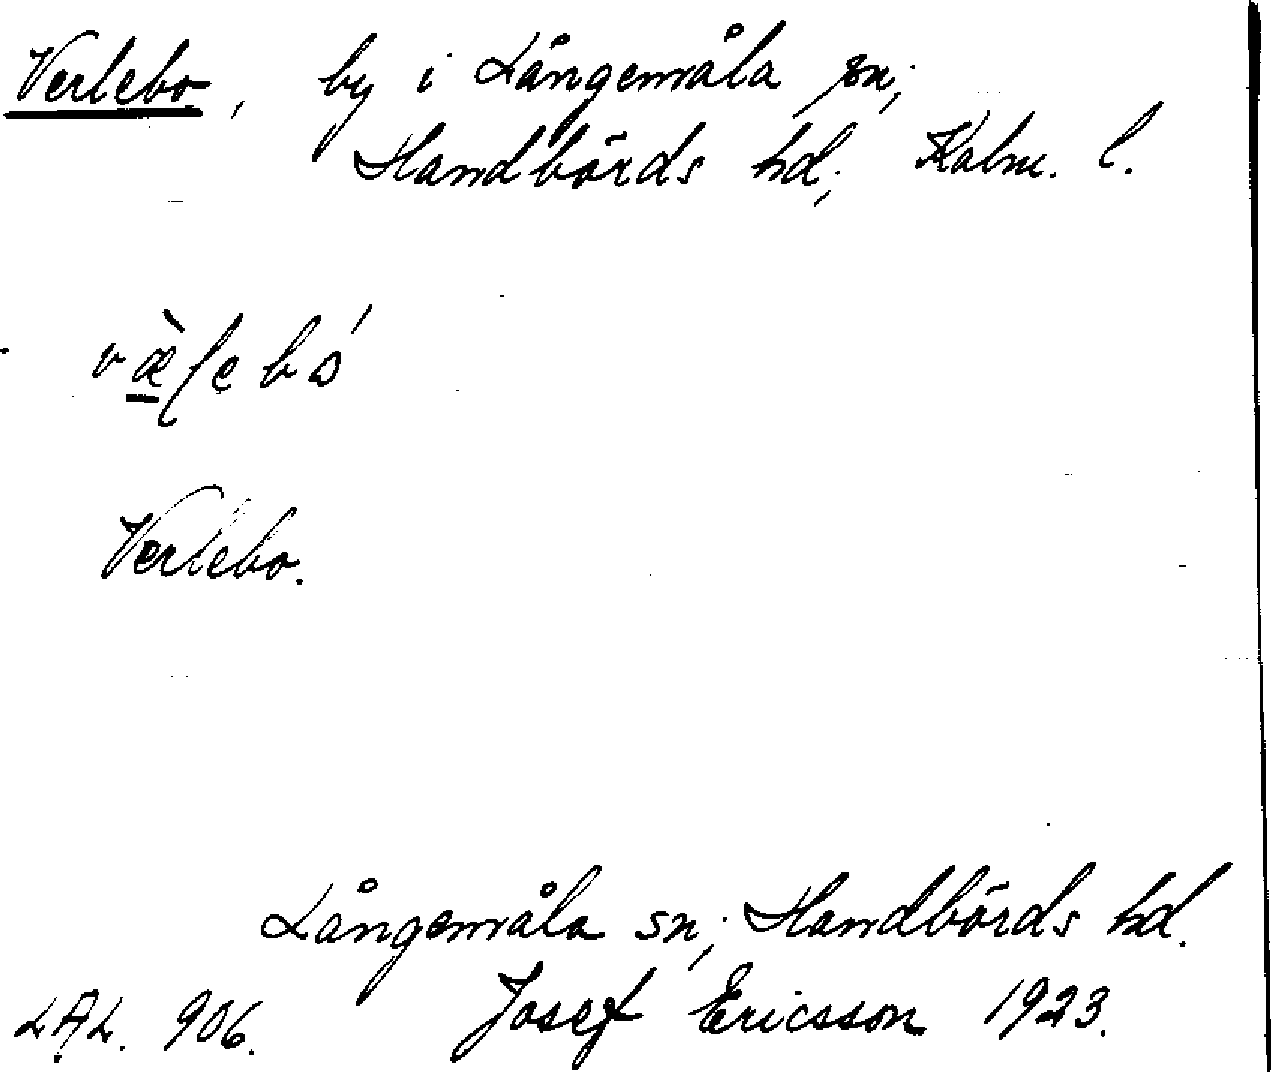 Verlebo, by i Långemåla sn;
Handbörds hd; Kalm. l.
Verlebo.
Långemåla sn; Handbörds hd.
LAL. 906. Josef Ericsson 1923.